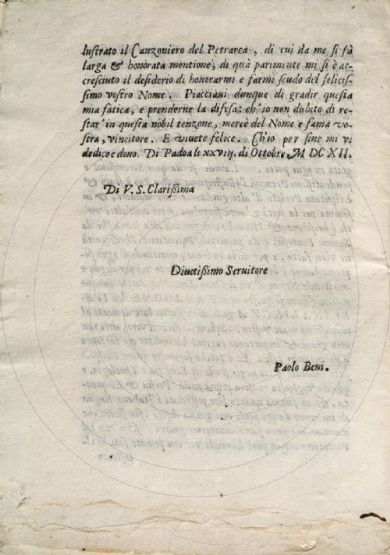 lustrato il Canzoniero del Petrarca, di cui da me si fà
larga & honorata mentione; di quà parimente mi si è ac-
cresciuto il desiderio di honorarmi e farmi scudo del felicis-
simo vostro Nome. Piacciaui dunque di gradir questa
mia fatica, e prenderne la difesa: ch'io non dubito di re-
star' in questa nobil tenzone, mercè del Nome e fama vo-
stra, vincitore. E viuete felice. Ch'io per fine mi vi
dedico e dono. Di Padoa li xxviij. di Ottobre, M DC XII.
Di V. S. Clarissima
Diuotissimo Seruitore
Paolo Beni.